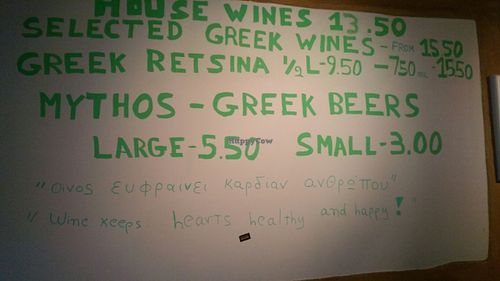 HOUSE WINES 13.50
SELECTED GREEK WINES - FROM 15.50
GREEK RETSINA ½ L-9.50 - 750 ML -15.50
MYTHOS - GREEK BEERS
LARGE-5.50 SMALL-3.00
HappyCow
"οινος ευφραινει καρδιαν ανθρώπου"
"Wine keeps hearts healthy and happy!"